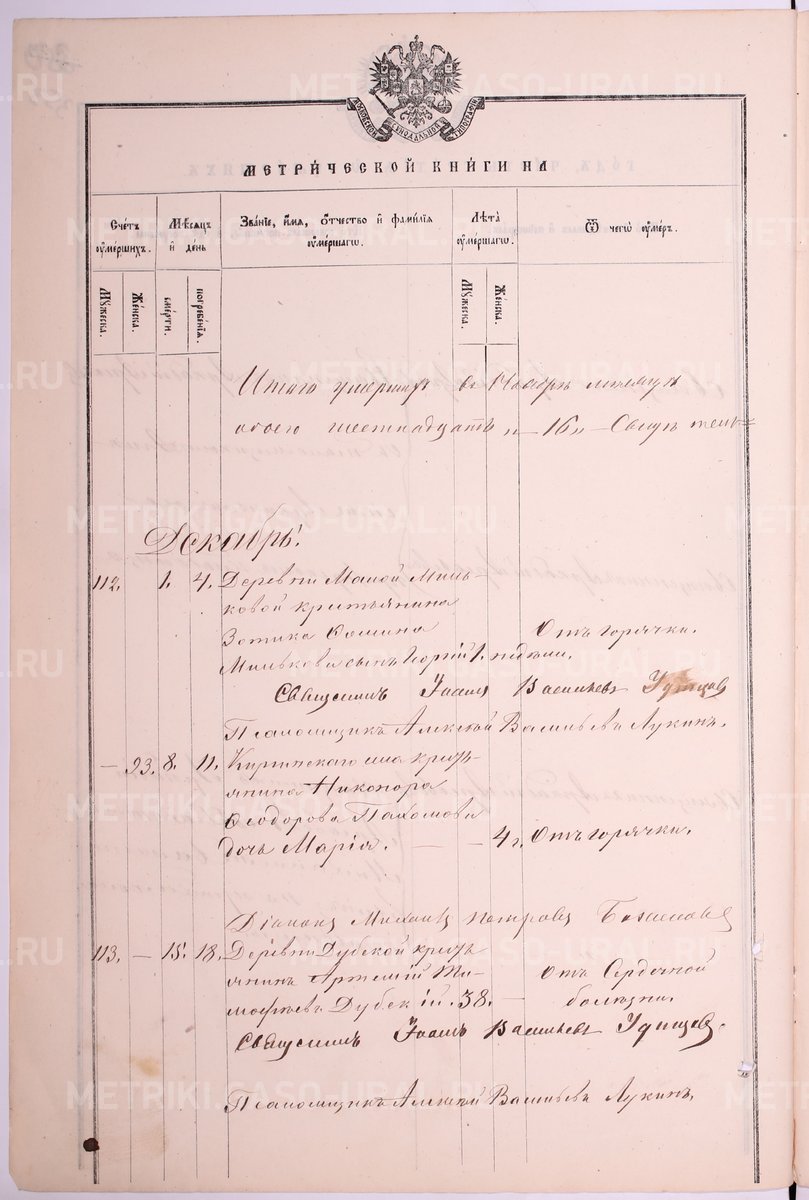 МОСКОВСКОЙ СѴНОДАЛЬНОЙ ТИПОГРАФІИ
МЕТРИ́ЧЕСКОЙ КНИ́ГИ НА
Счётъ ᲂу҆мéршихъ.
Мѣ́сяцъ и҆ дéнь
Звáнїе, и҆́мѧ, ѻ҆́тчество и҆ фами́лїѧ ᲂу҆мéршагѡ.
Лѣ̑та ᲂу҆мéршагѡ.
Ѿ чегѡ̀ ᲂу҆́меръ.
Мꙋ́жеска.
Жéнска.
смéрти.
погребéнїѧ.
Мꙋ́жеска.
Жéнска.
Итого умершихъ въ Ноябрѣ мѣсяцѣ
обоего шестнадцать „—16„—
Декабрь.
112. 1. 4. Деревни Малой Миль-
ковой крестьянина
Зотика Фомина
Милькова сынъ Георгій 1. недѣли. Отъ горячки.
Священникъ Іоаннъ Васильевъ Удинцовъ
Псаломщикъ Алексѣй Васильевъ Лукинъ.
— 93. 8. 11. Киргинскаго села кресть-
янина Никонора
Ѳеодорова Пахомова
дочь Марія. — 4 г. Отъ горячки.
Діаконъ Михаилъ Петровъ
113. — 15. 18. Деревни Дубской кресть-
янинъ Артемій Ти-
мофѣевъ Дубскій. 38. — Отъ Сердечной
болѣзни.
Священникъ Іоаннъ Васильевъ Удинцовъ.
Псаломщикъ Алексѣй Васильевъ Лукинъ.
METRIKI.GASO-URAL.RU